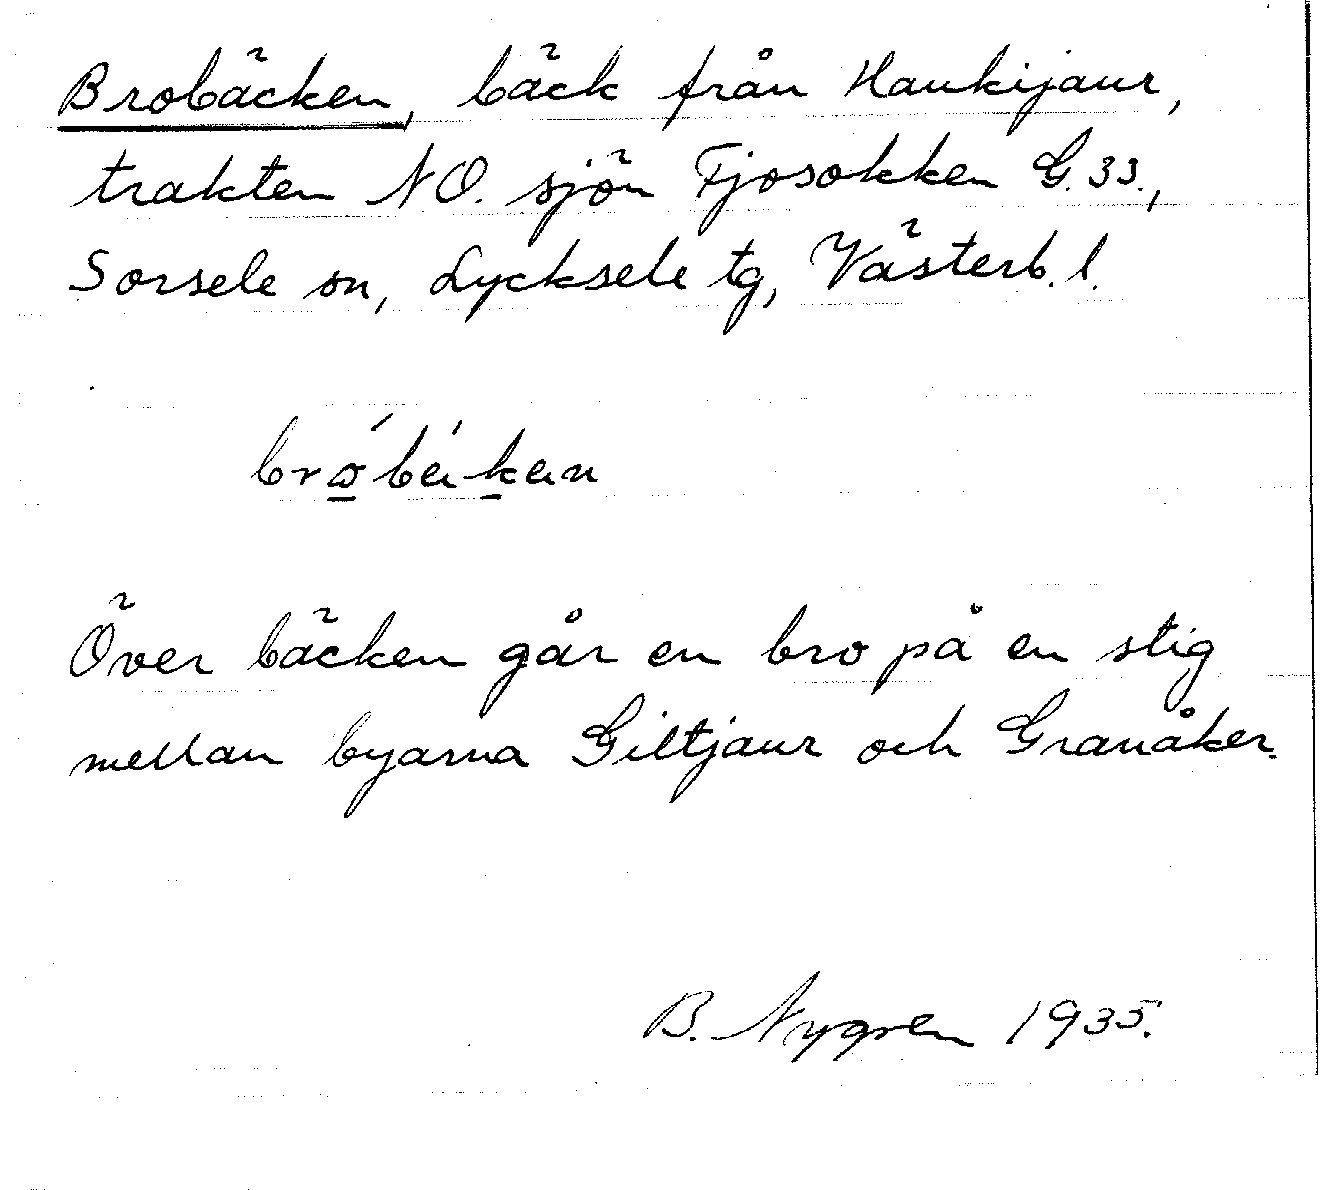 Brobäcken, bäck från Haukijaur,
trakten NO. sjön Fjosokken G.33.,
Sorsele sn, Lycksele tg, Västerb. l.
Över bäcken går en bro på en stig
mellan byarna Giltjaur och Granåker.
B. Nygren 1935.